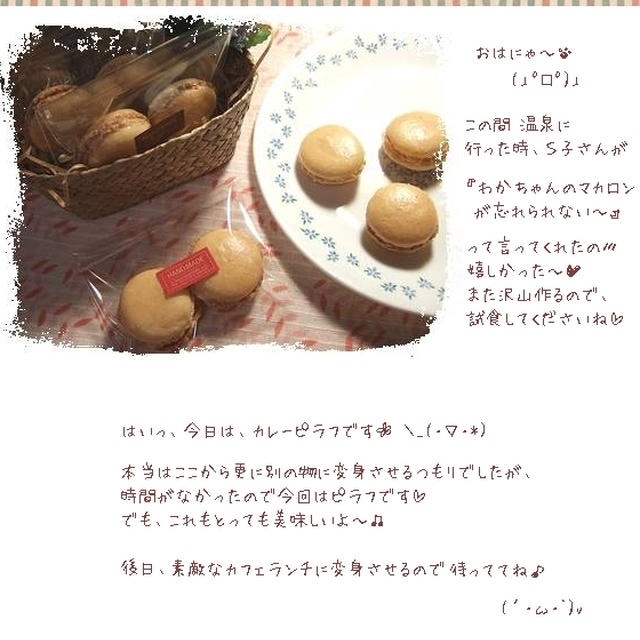 おはにゃ～🐾
(」°ロ°)」
この間 温泉に
行った時、S子さんが
『わかちゃんのマカロン
が忘れられない～』
って言ってくれたの〃
嬉しかった～♥
また沢山作るので、
試食してくださいね♡
HAND MADE
はいっ、今日は、カレーピラフです🌼 ＼_(・▽・*)
本当はここから更に別の物に変身させるつもりでしたが、
時間がなかったので今回はピラフです♡
でも、これもとっても美味しいよ～♫
後日、素敵なカフェランチに変身させるので 待っててね♪
(´・ω・`)v